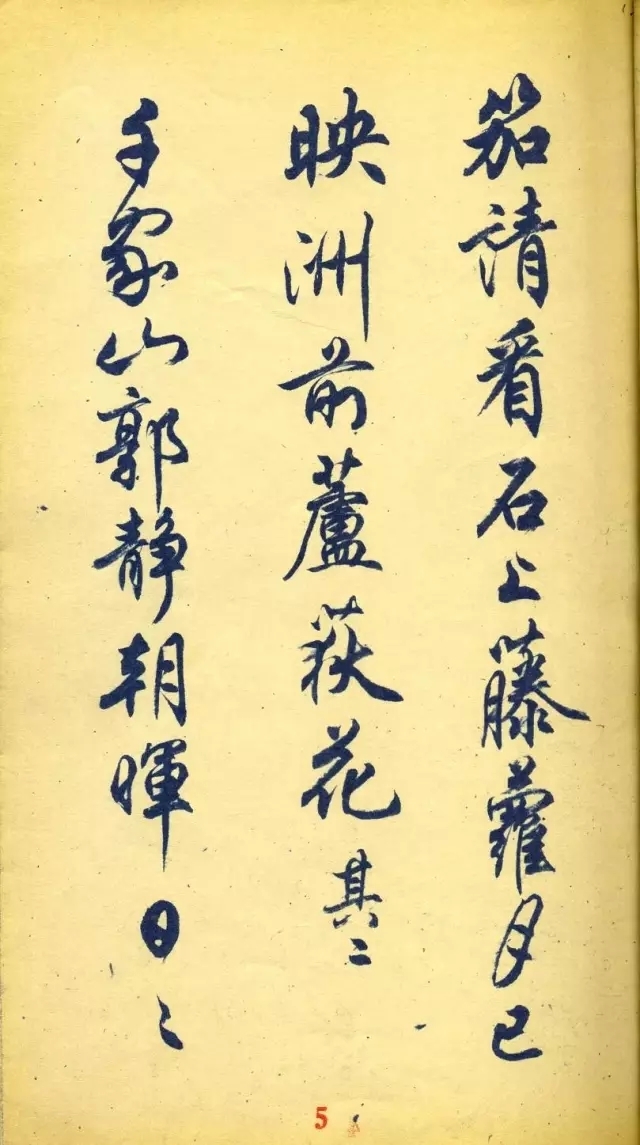 笳請看石上藤蘿月已
映洲前蘆荻花其二
千家山郭静朝暉日〻
5